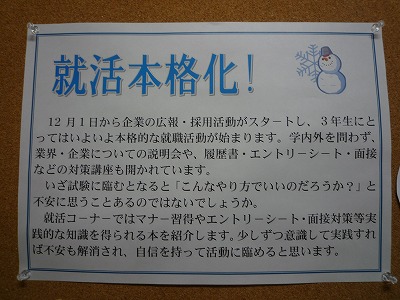 就活本格化!
12月1日から企業の広報・採用活動がスタートし、3年生にとってはいよいよ本格的な就職活動が始まります。学内外を問わず、業界・企業についての説明会や、履歴書・エントリーシート・面接などの対策講座も開かれています。
いざ試験に臨むとなると「こんなやり方でいいのだろうか?」と不安に思うことあるのではないでしょうか。
就活コーナーではマナー習得やエントリーシート・面接対策等実践的な知識を得られる本を紹介します。少しずつ意識して実践すれば不安も解消され、自信を持って活動に臨めると思います。